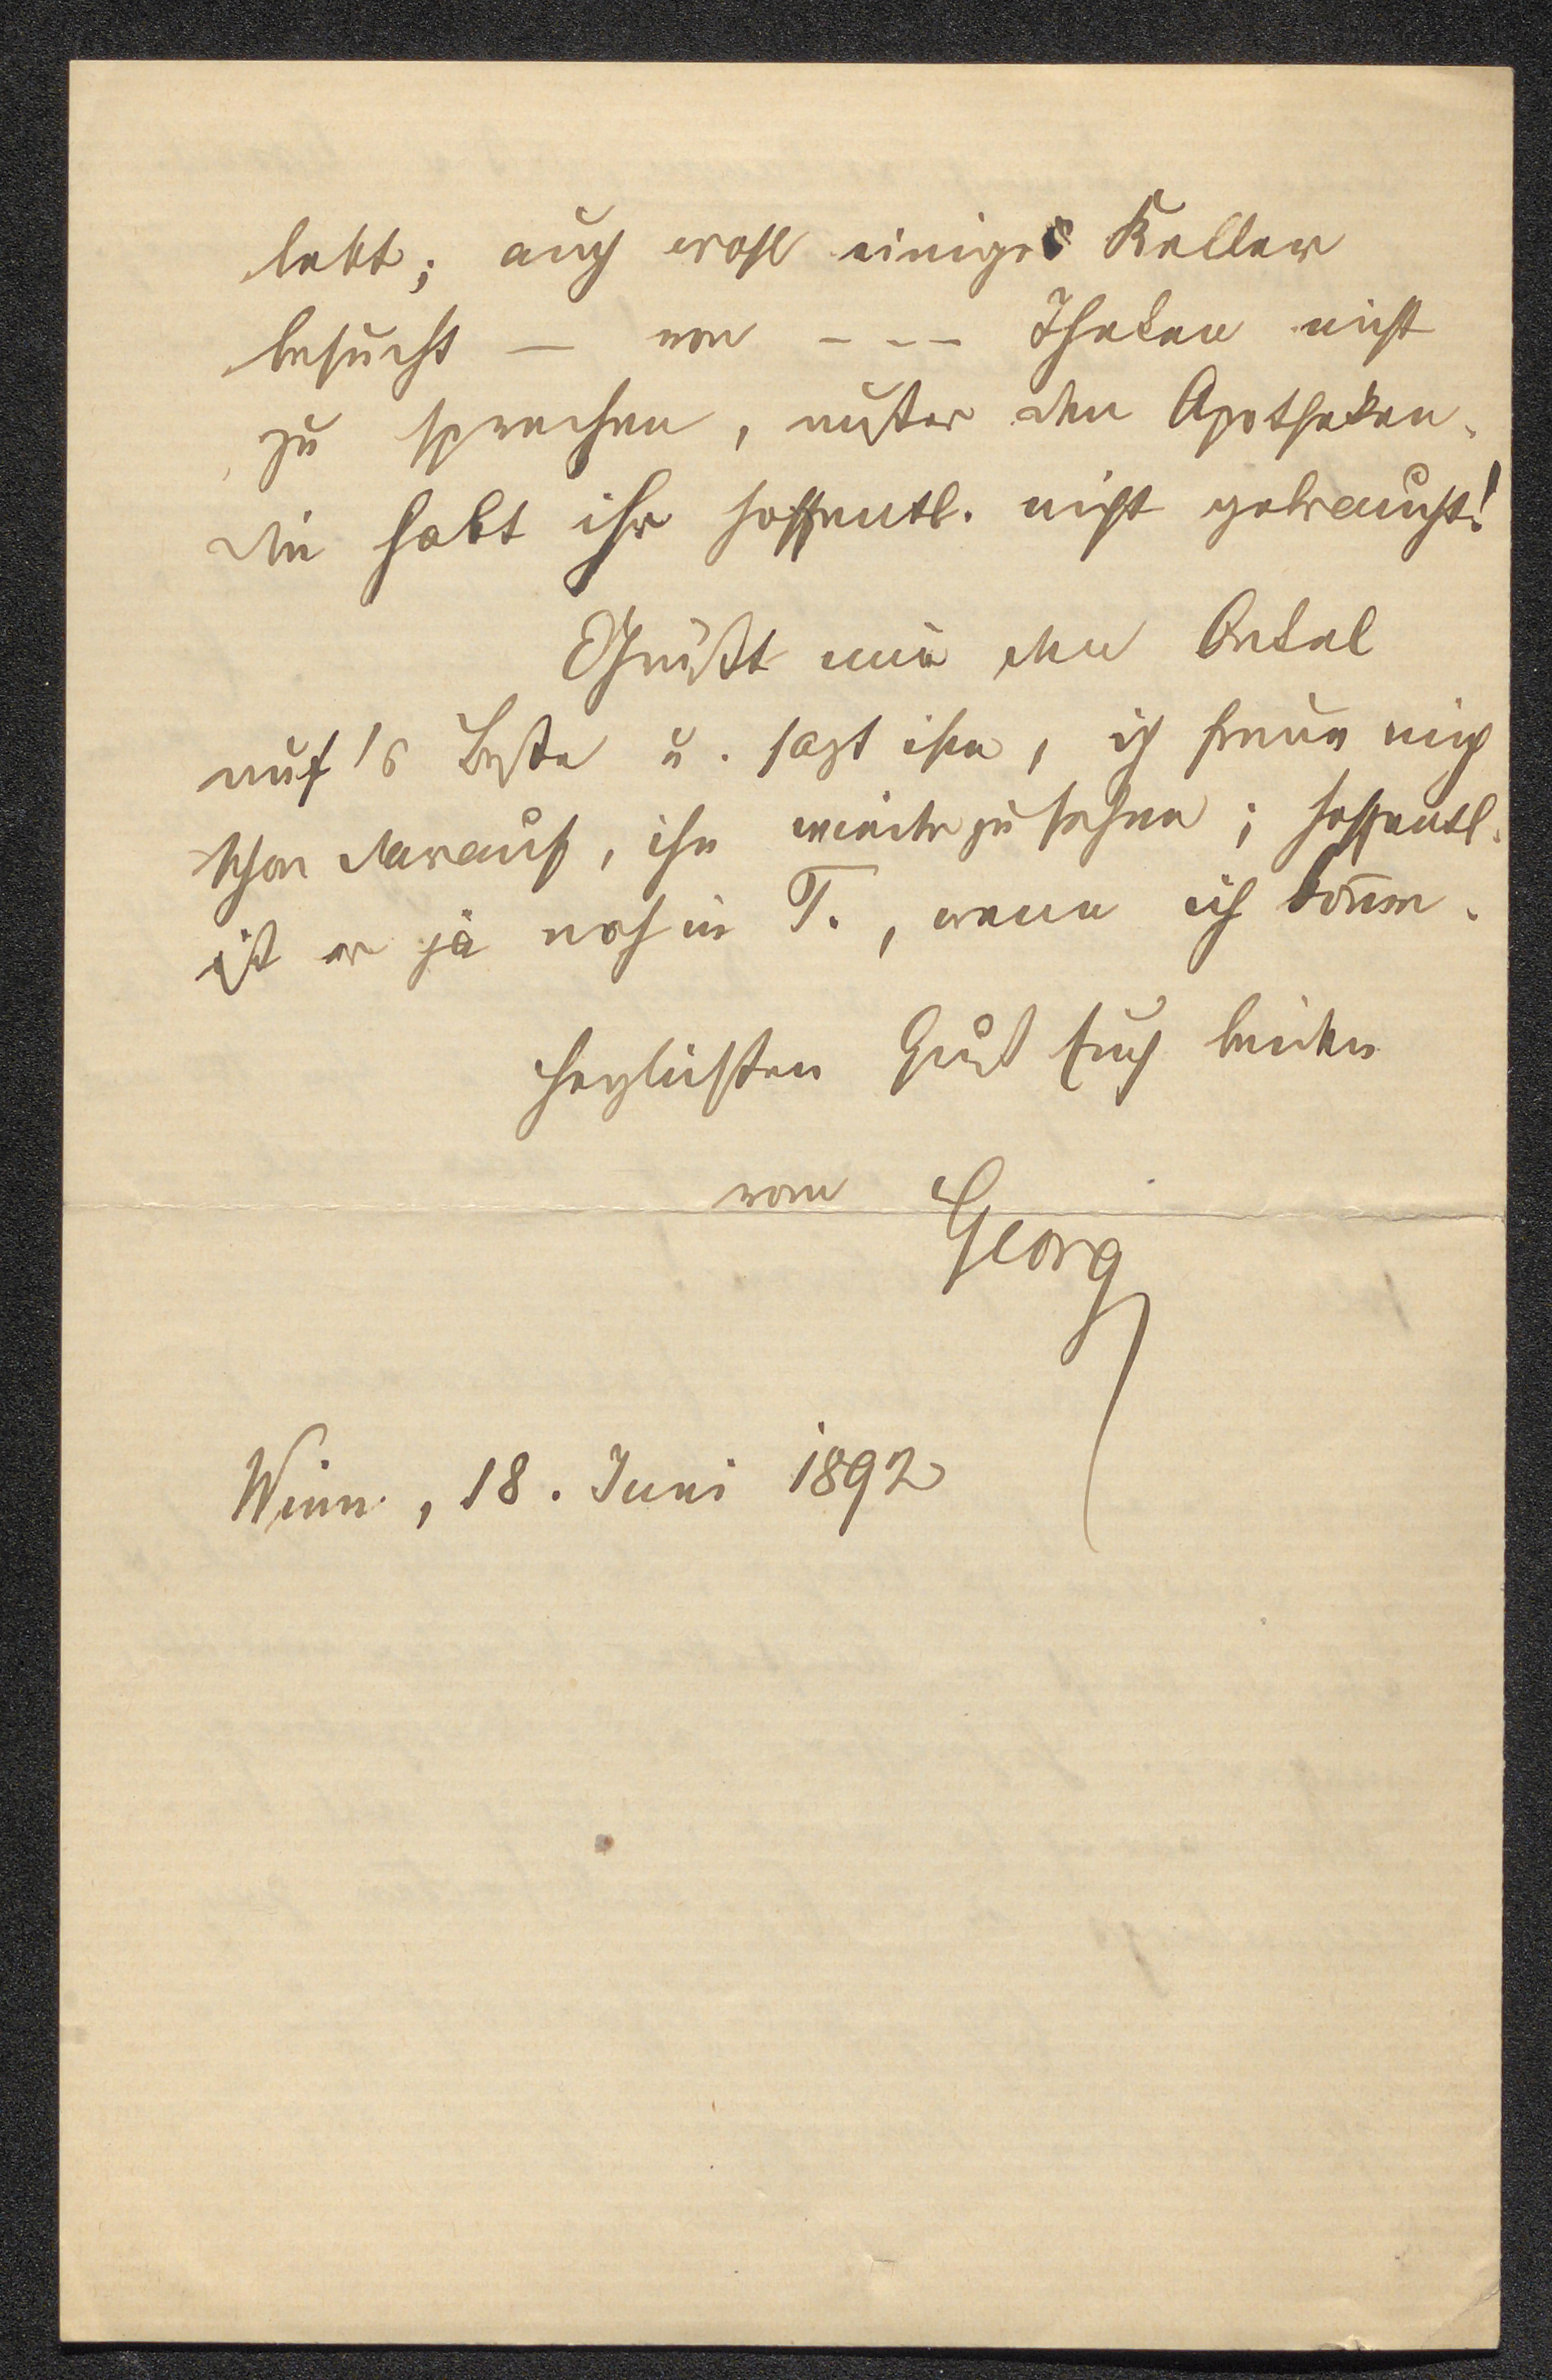 lebt; auch wohl einiges Keller
besucht — von - - - Theken nicht
zu sprechen, außer den Apotheken.
die habt ihr hoffentl. nicht gebraucht!
Grüßt mir den Onkel
auf's Beste u. sagt ihm, ich freue mich
schon darauf, ihn wiederzusehen; hoffentl.
ist er ja noch in T., wenn ich kom̄e.
Herzlichsten Gruß Euch beiden
vom Georg
Wien, 18. Juni 1892